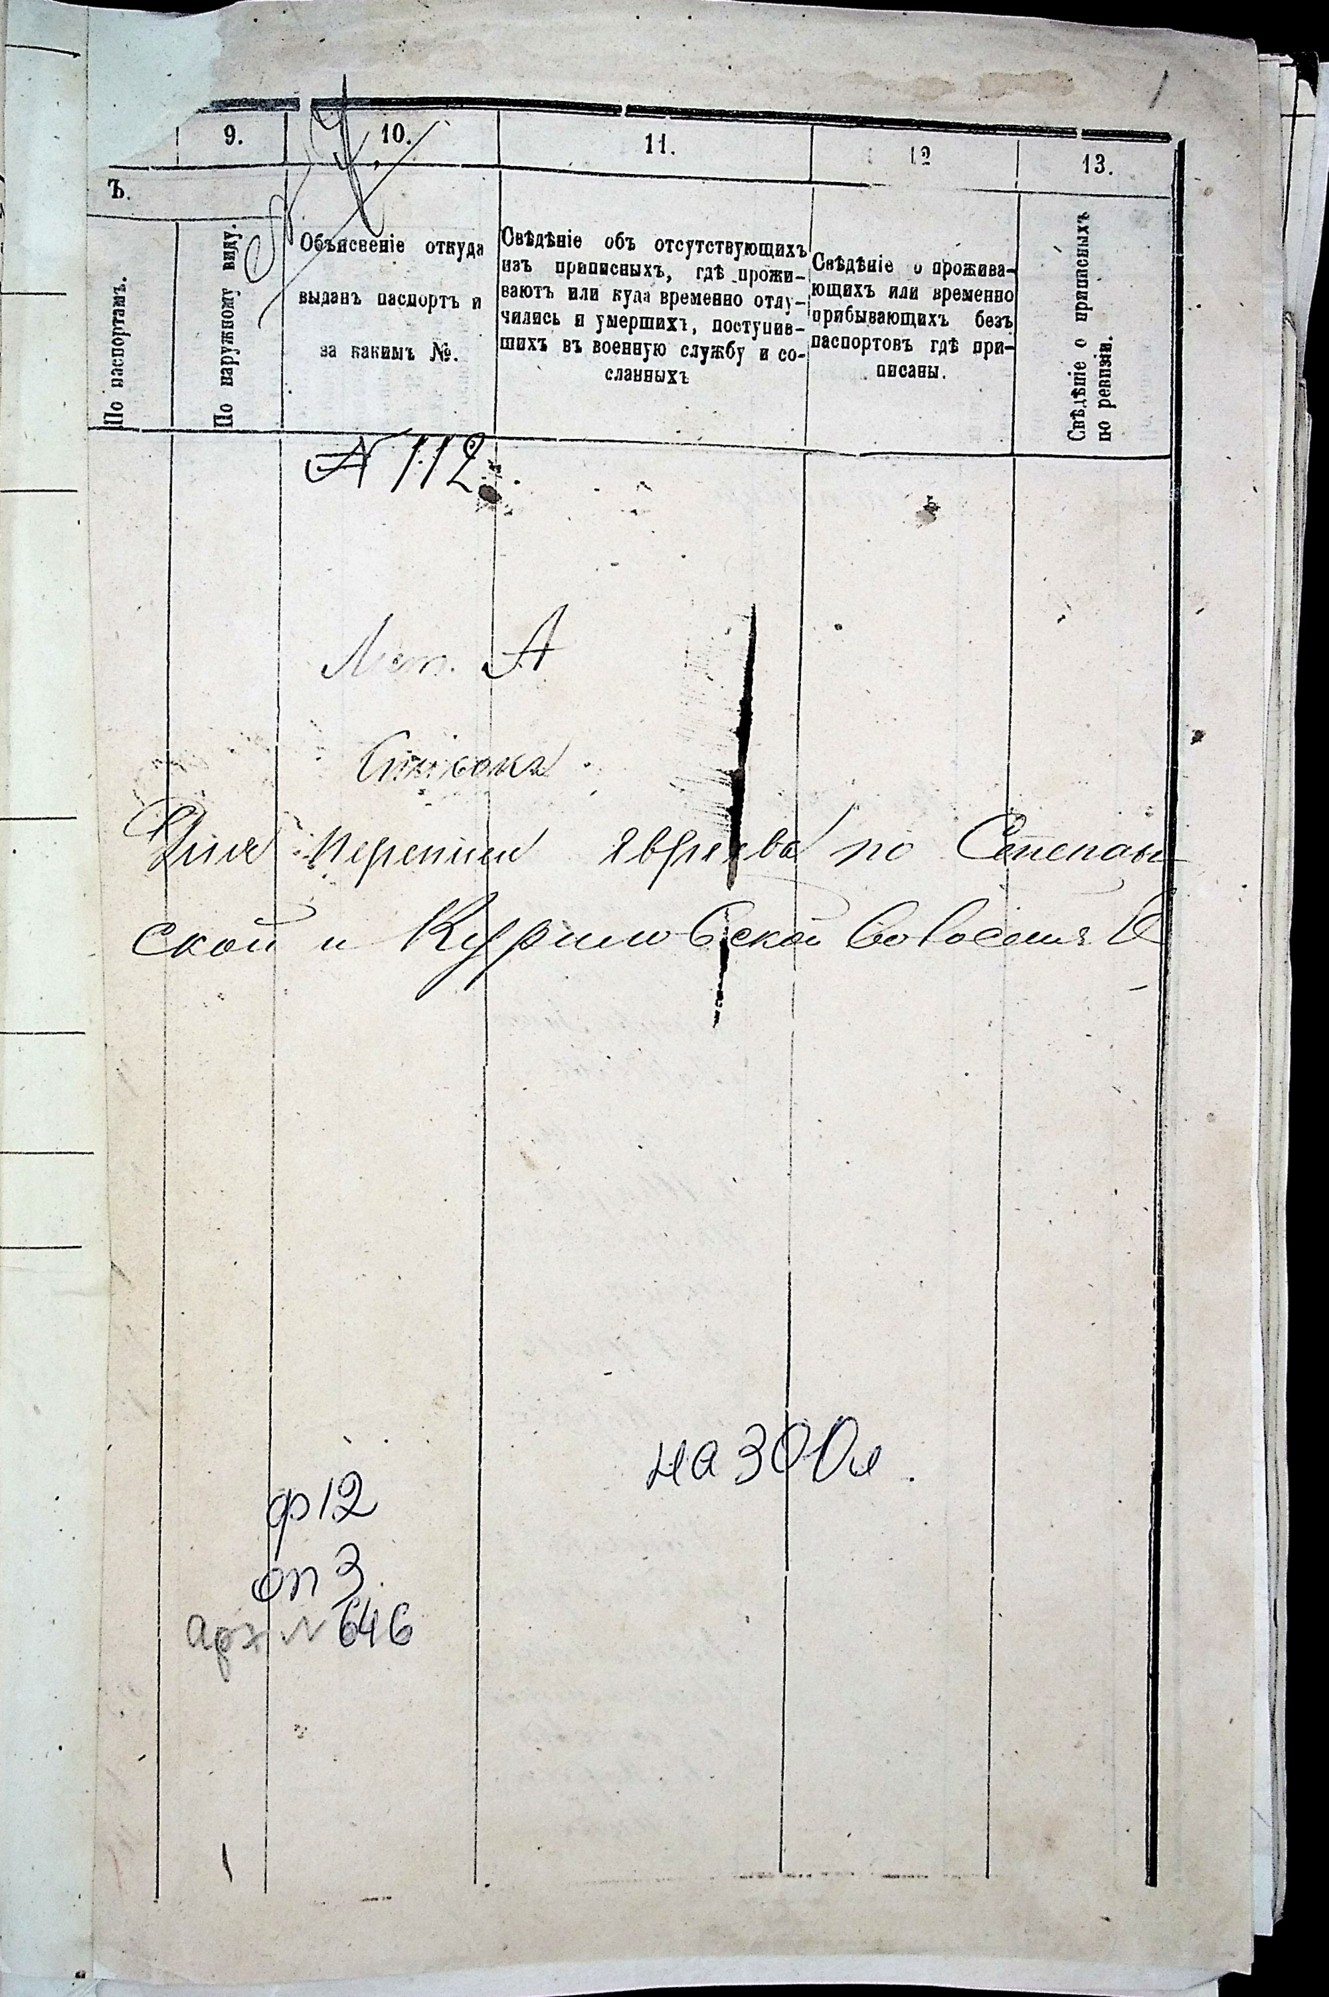 1
9.
10.
11.
12
13.
Ъ.
По паспортамъ.
По наружному виду.
Объясвеніе откуда
выданъ паспортъ и
за какимъ №.
Свѣдѣніе объ отсутствующихъ
изъ приписныхъ, гдѣ прожи-
ваютъ или куда временно отлу-
чились и умершихъ, поступив-
шихъ въ военную службу и со-
сланныхъ
Свѣдѣніе о прожива-
ющихъ или временно
прибывающихъ безъ
паспортовъ гдѣ при-
писаны.
Свѣдѣніе о приписныхъ
по ревизіи.
N 112.
Лит. А
Списокъ
Для переписи Евреевъ по Степань-
ской и Куриловской волостямъ
на 300л.
ф 12
оп 3.
арх N 646